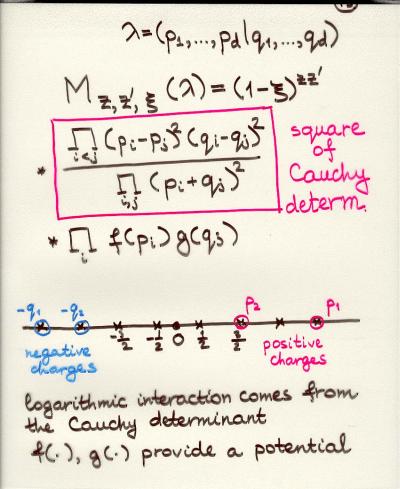 λ=(p₁,...,p_d|q₁,...,q_d)
M_{z,z',ξ}(λ)=(1-ξ)^{zz'}
* ∏_{i<j}(p_i-p_j)²(q_i-q_j)² / ∏_{i,j}(p_i+q_j)²
square
of
Cauchy
determ.
* ∏_i f(p_i)g(q_i)
-q₁ -q₂ p₂ p₁
-3/2 -1/2 0 1/2 3/2
negative charges
positive charges
logarithmic interaction comes from
the Cauchy determinant
f(·), g(·) provide a potential